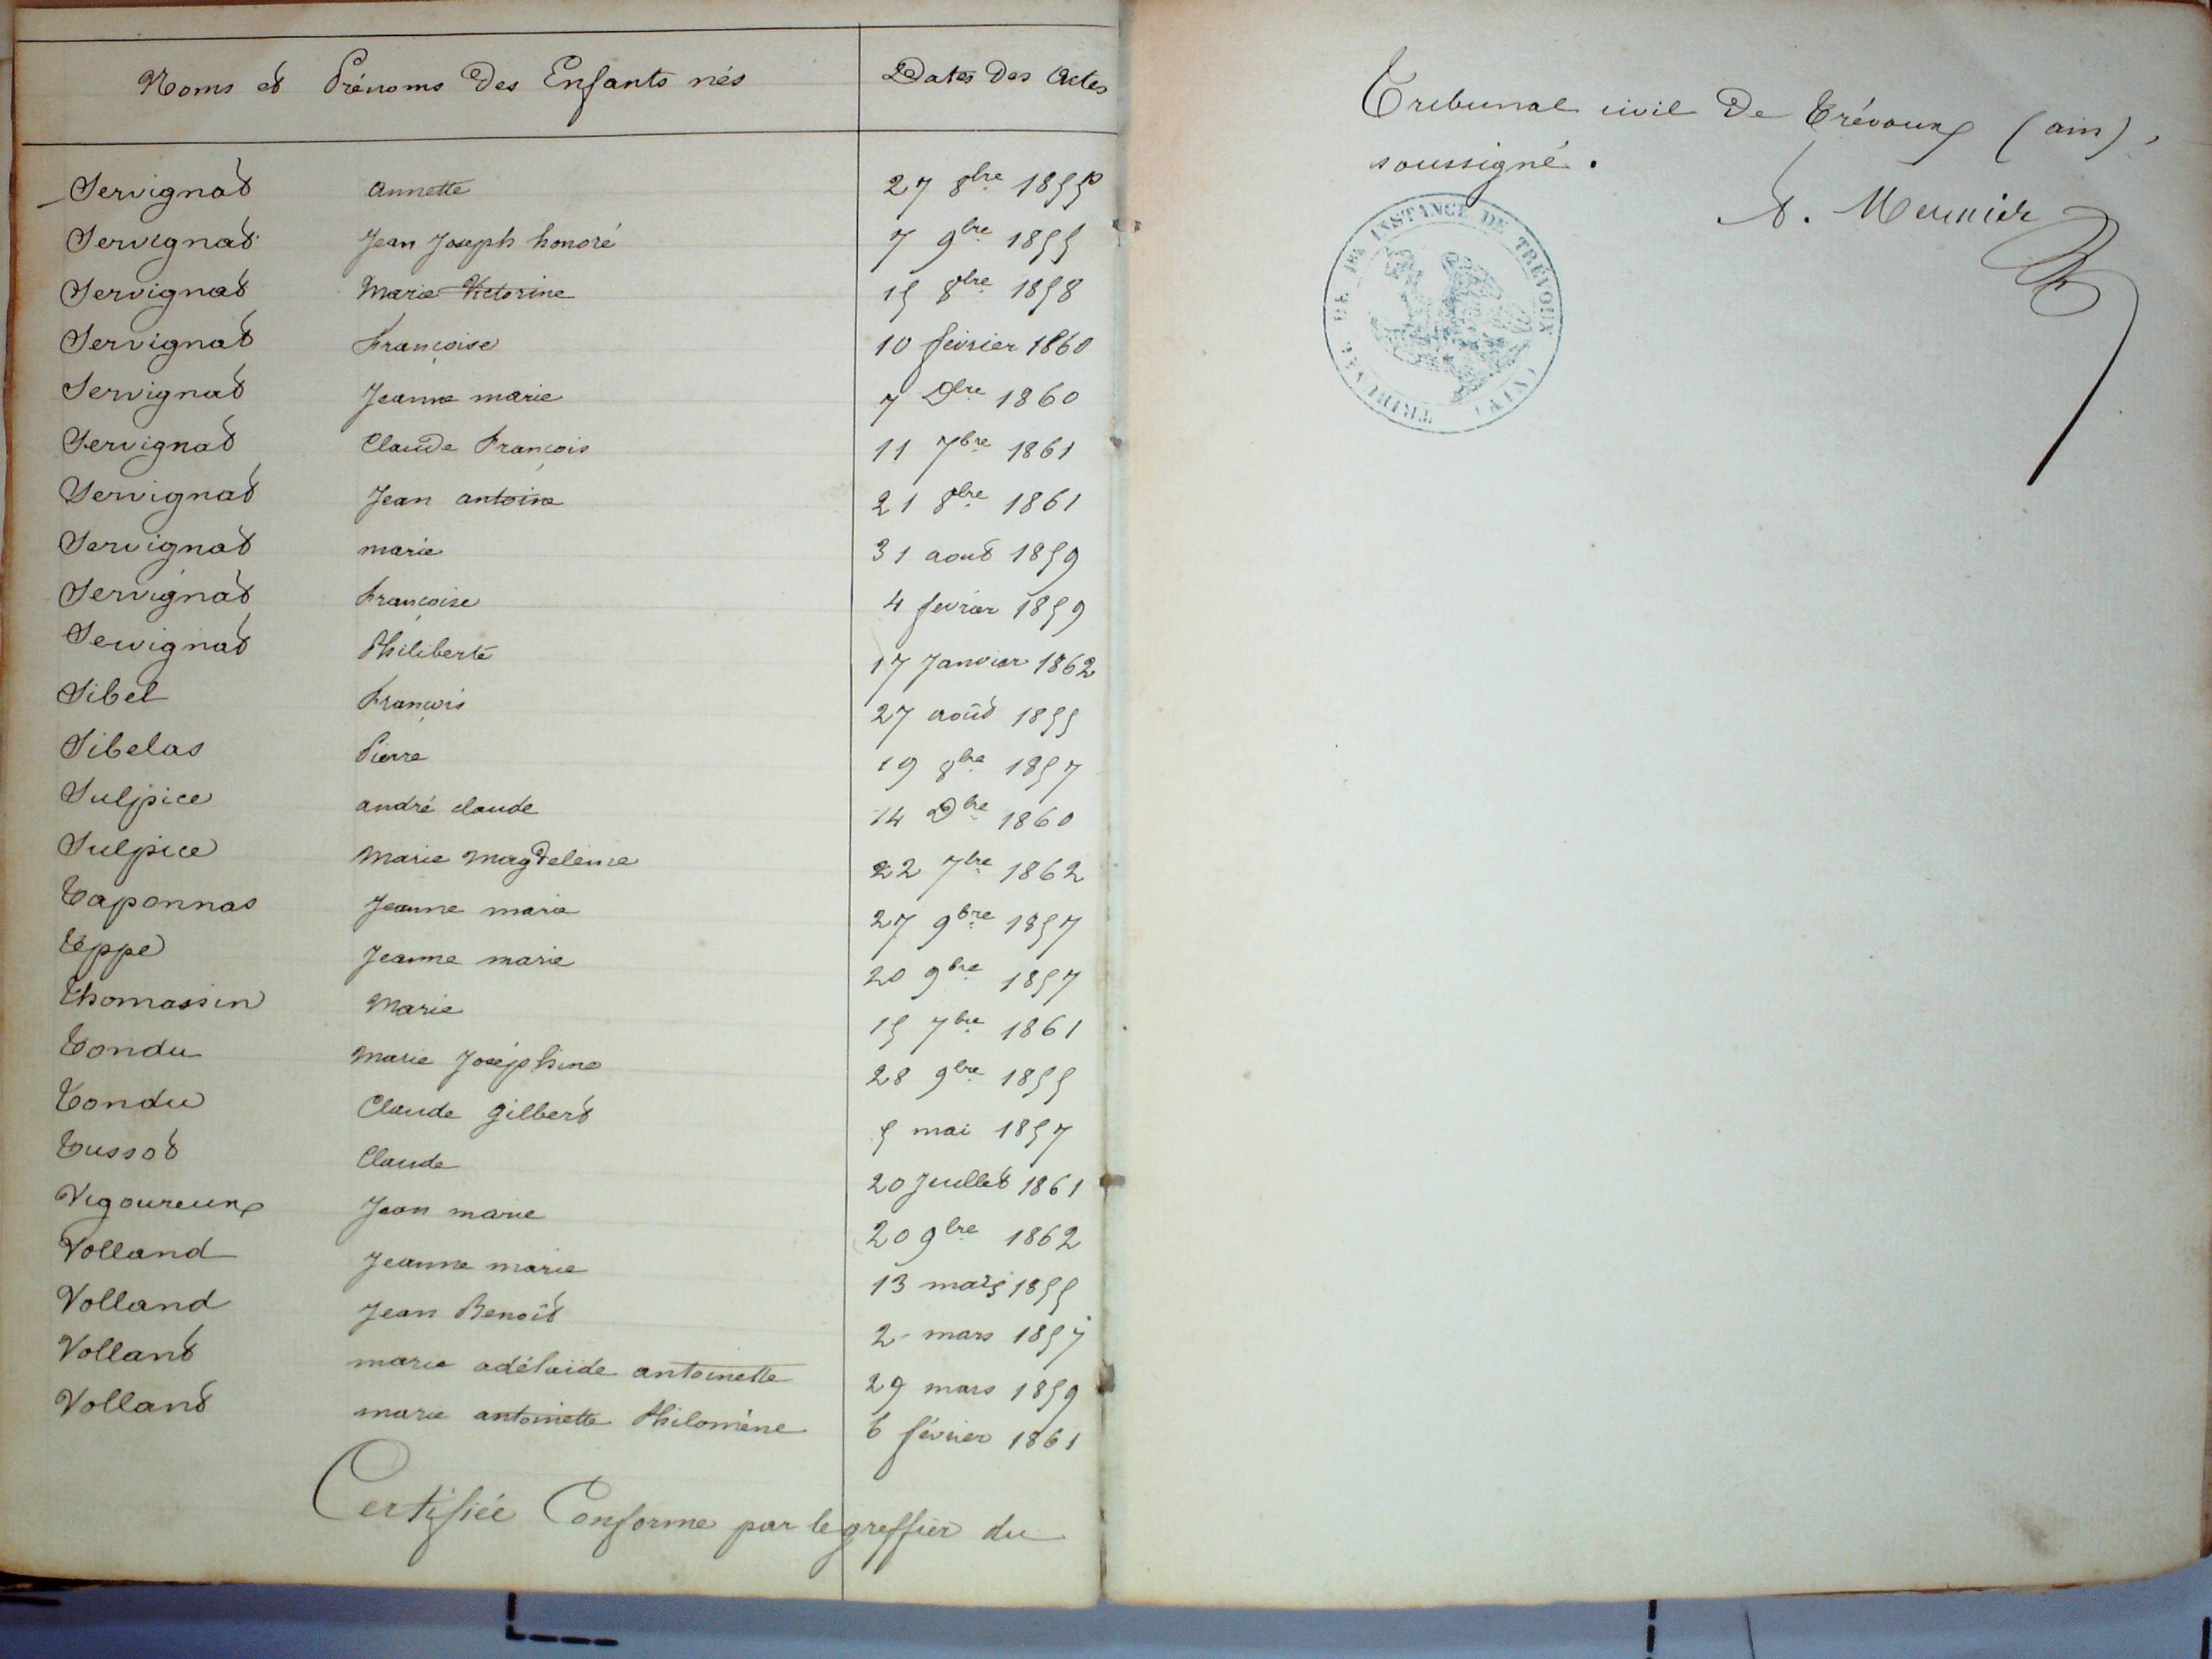 Noms et Prénoms des Enfants nés Dates des Actes
Servignat annette 27 8bre 1855
Servignat Jean Joseph honoré 7 9bre 1855
Servignat Marie Victorine 15 8bre 1858
Servignat françoise 10 février 1860
Servignat Jeanne marie 7 Dbre 1860
Servignat Claude françois 11 7bre 1861
Servignat Jean antoine 21 8bre 1861
Servignat marie 31 aout 1859
Servignat françoise 4 fevrier 1859
Servignat Philiberte 17 Janvier 1862
Sibel françois 27 août 1855
Sibelas Pierre 19 8bre 1857
Sulpice andré claude 14 Dbre 1860
Sulpice Marie Magdeleine 22 7bre 1862
Taponnas Jeanne marie 27 9bre 1857
Teppe Jeanne marie 20 9bre 1857
Thomassin Marie 15 7bre 1861
Tondu Marie Joséphine 28 9bre 1855
Tondu Claude gilbert 5 mai 1857
Tussot Claude 20 Juillet 1861
Vigoureux Jean marie 20 9bre 1862
Volland Jeanne marie 13 mars 1855
Volland Jean Benoît 2 mars 1857
Volland marie adélaide antoinette 29 mars 1859
Volland marie antoinette Philomène 6 février 1861
Certifiée Conforme par le greffier du
Tribunal civil de Trévoux (ain),
soussigné.
Meunier
TRIBUNAL DE 1ER INSTANCE DE TRÉVOUX (AIN)